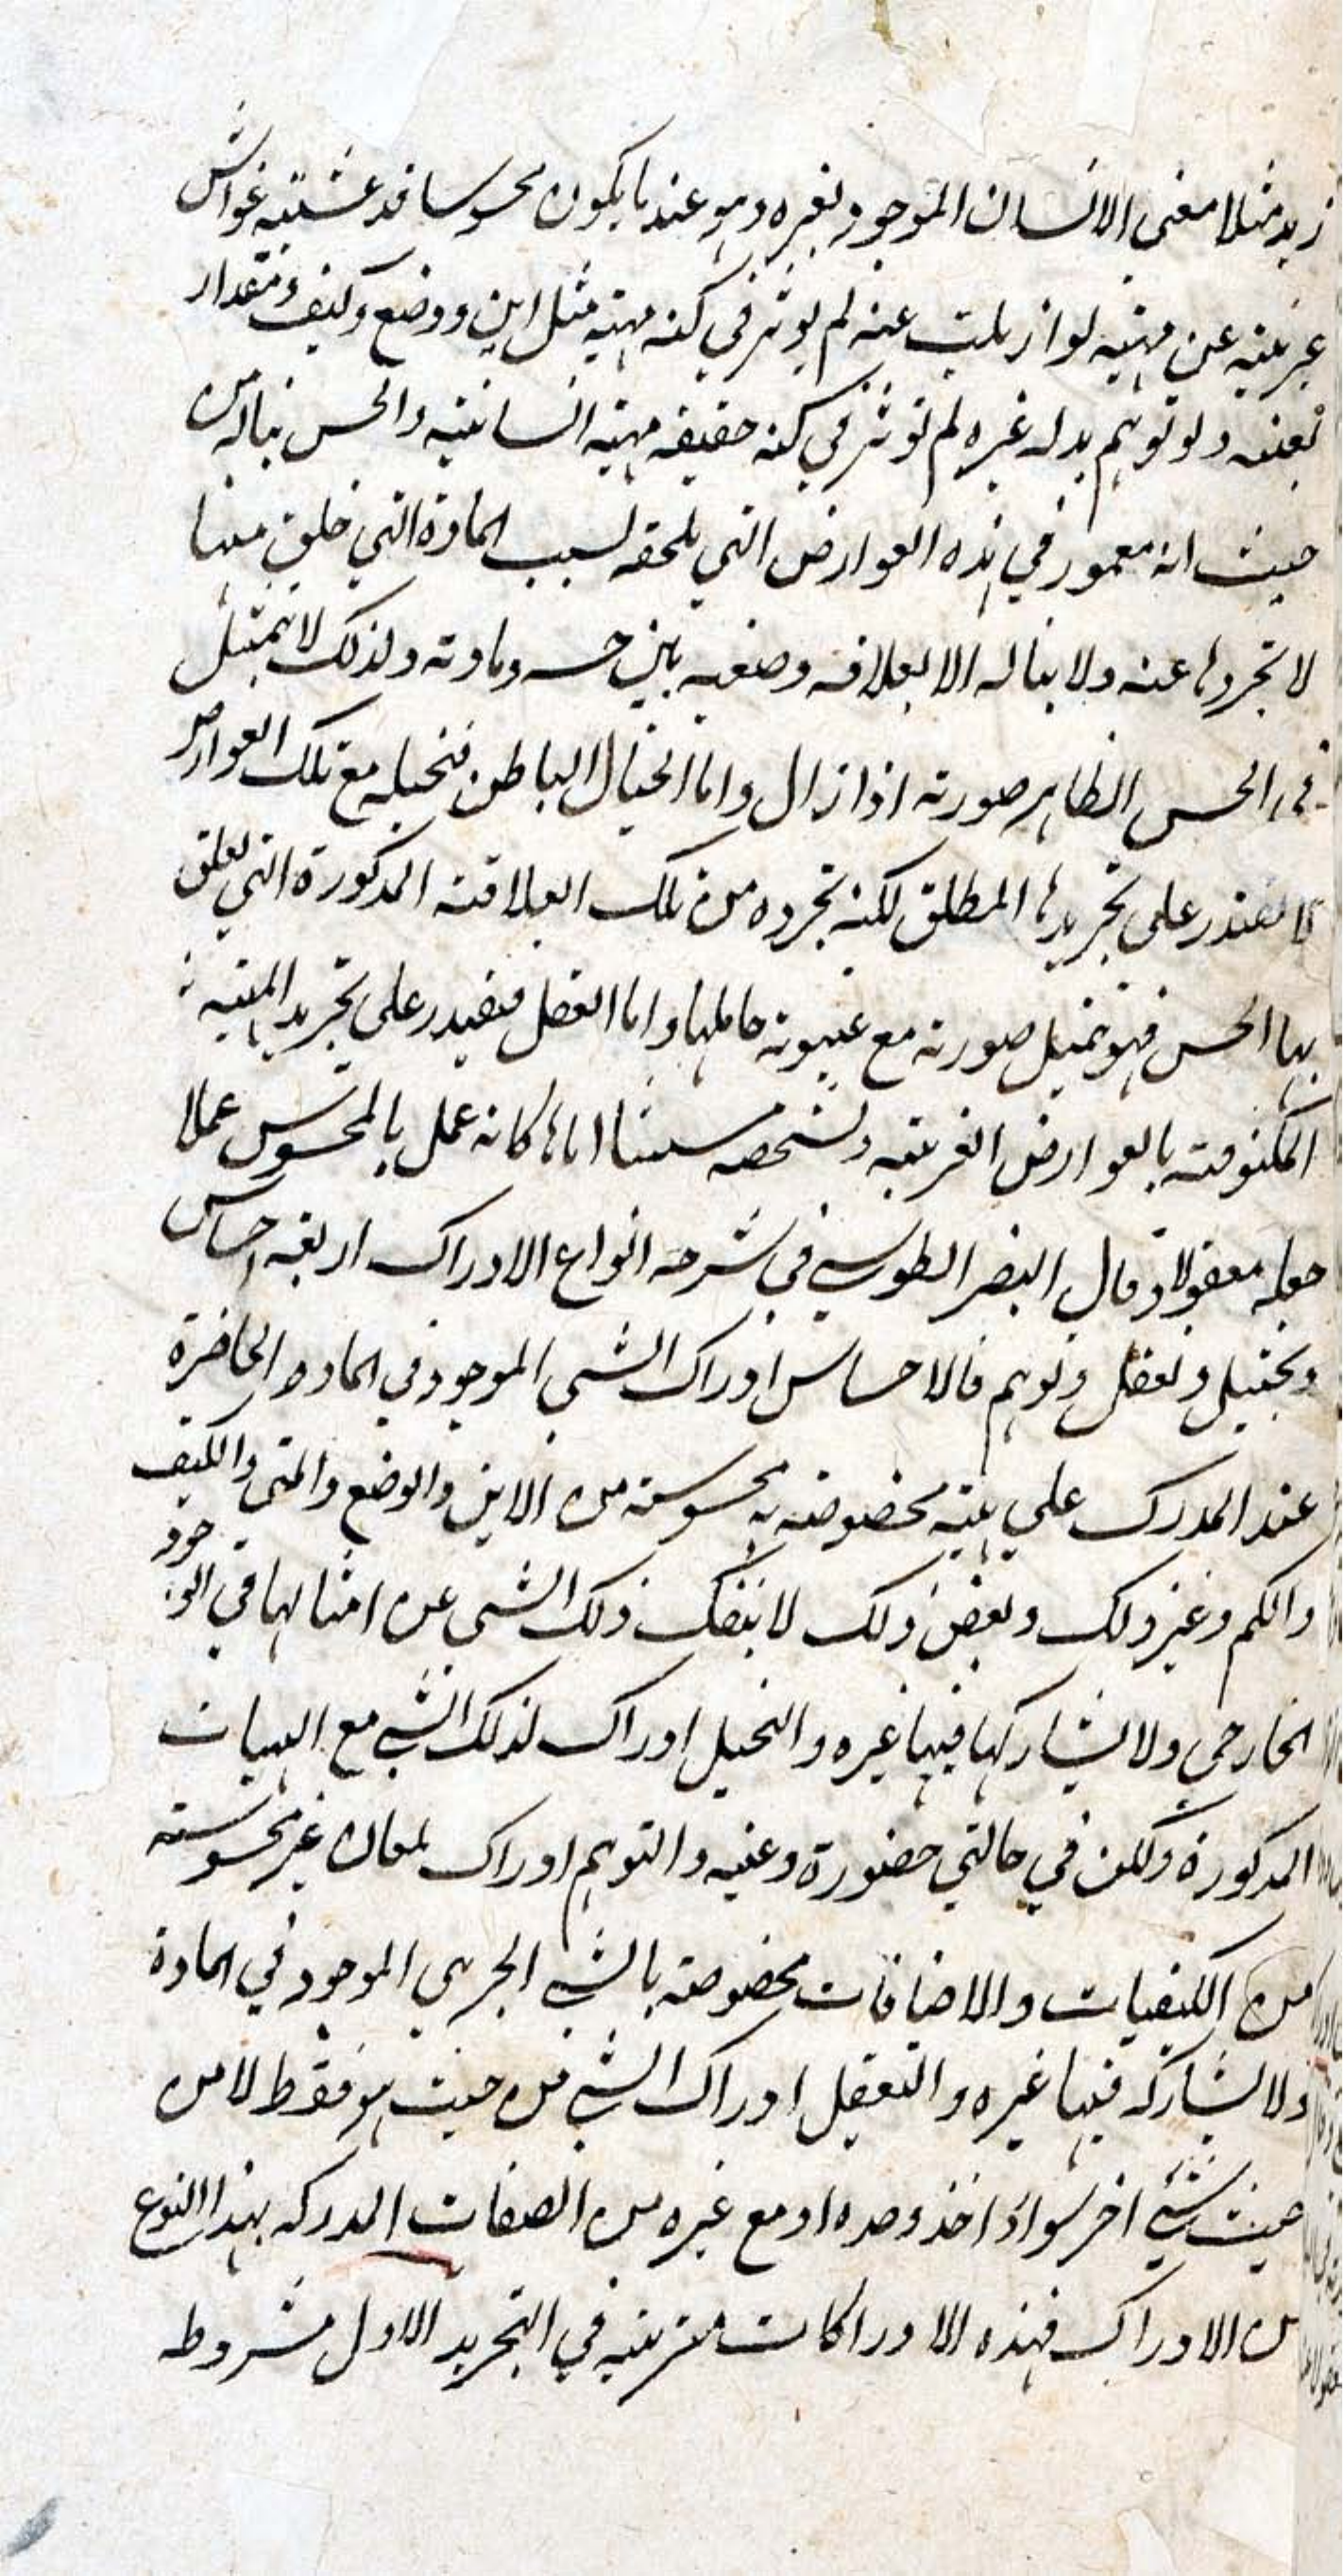 زيد مثلا معنى الانسان الموجود لغيره وهو عندما يكون محسوسا قد غشيته غواش
غريبة عن مهيته لو ازيلت عنه لم يوثر في كنه مهيته مثل اين ووضع وكيف ومقدار
بعينه ولو توهم بدله غيره لم توثر في كنه حقيقه مهية انسانيته والحس يناله من
حيث انه مغمور في هذه العوارض التي يلحقه لسبب المادة التي خلق منها
لا تجردها عنه ولا يناله الا بعلاقه وضعيه بين حسه ومادته ولذلك لا يتمثل
في الحس الظاهر صورته اذا زال واما الخيال الباطن فتخيله مع تلك العوارض
لا يقتدر على تجريدها المطلق لكنه تجرده من تلك العلاقة المذكورة التي تعلق
بها الحس فهو تمثيل صورته مع غيبوبة حاملها واما العقل فيقدر على تجريد المهية
المكنوفة بالعوارض الغريبه المشخصه مستثبتا اياها كانه عمل بالمحسوس عملا
جعله معقولا وقال النصير الطوسي في شرحه انواع الادراك اربعه احساس
وتخييل وتعقل وتوهم فالاحساس ادراك الشي الموجود في المادة الحاضرة
عند المدرك على هيئة مخصوصة به محسوسة من الاين والوضع والمتى والكيف
والكم وغير ذلك وبعض ذلك لا ينفك ذلك الشي عن امثالها في الوجود
الخارجي ولا يشاركها فيها غيره والتخيل ادراك لذلك الشي مع الهيات
المذكورة ولكن في حالتي حضورة وغيبه والتوهم ادراك لمعان غير محسوسة
من الكيفيات والاضافات مخصوصة بالشي الجزيى الموجود في المادة
ولا يشاركه فيها غيره والتعقل ادراك الشي من حيث هو فقط لا من
حيث شيئ اخر سواء اخذ وحده او مع غيره من الصفات المدركه بهذا النوع
من الادراك فهذه الادراكات مترتبه في التجريد الاول مشروطه